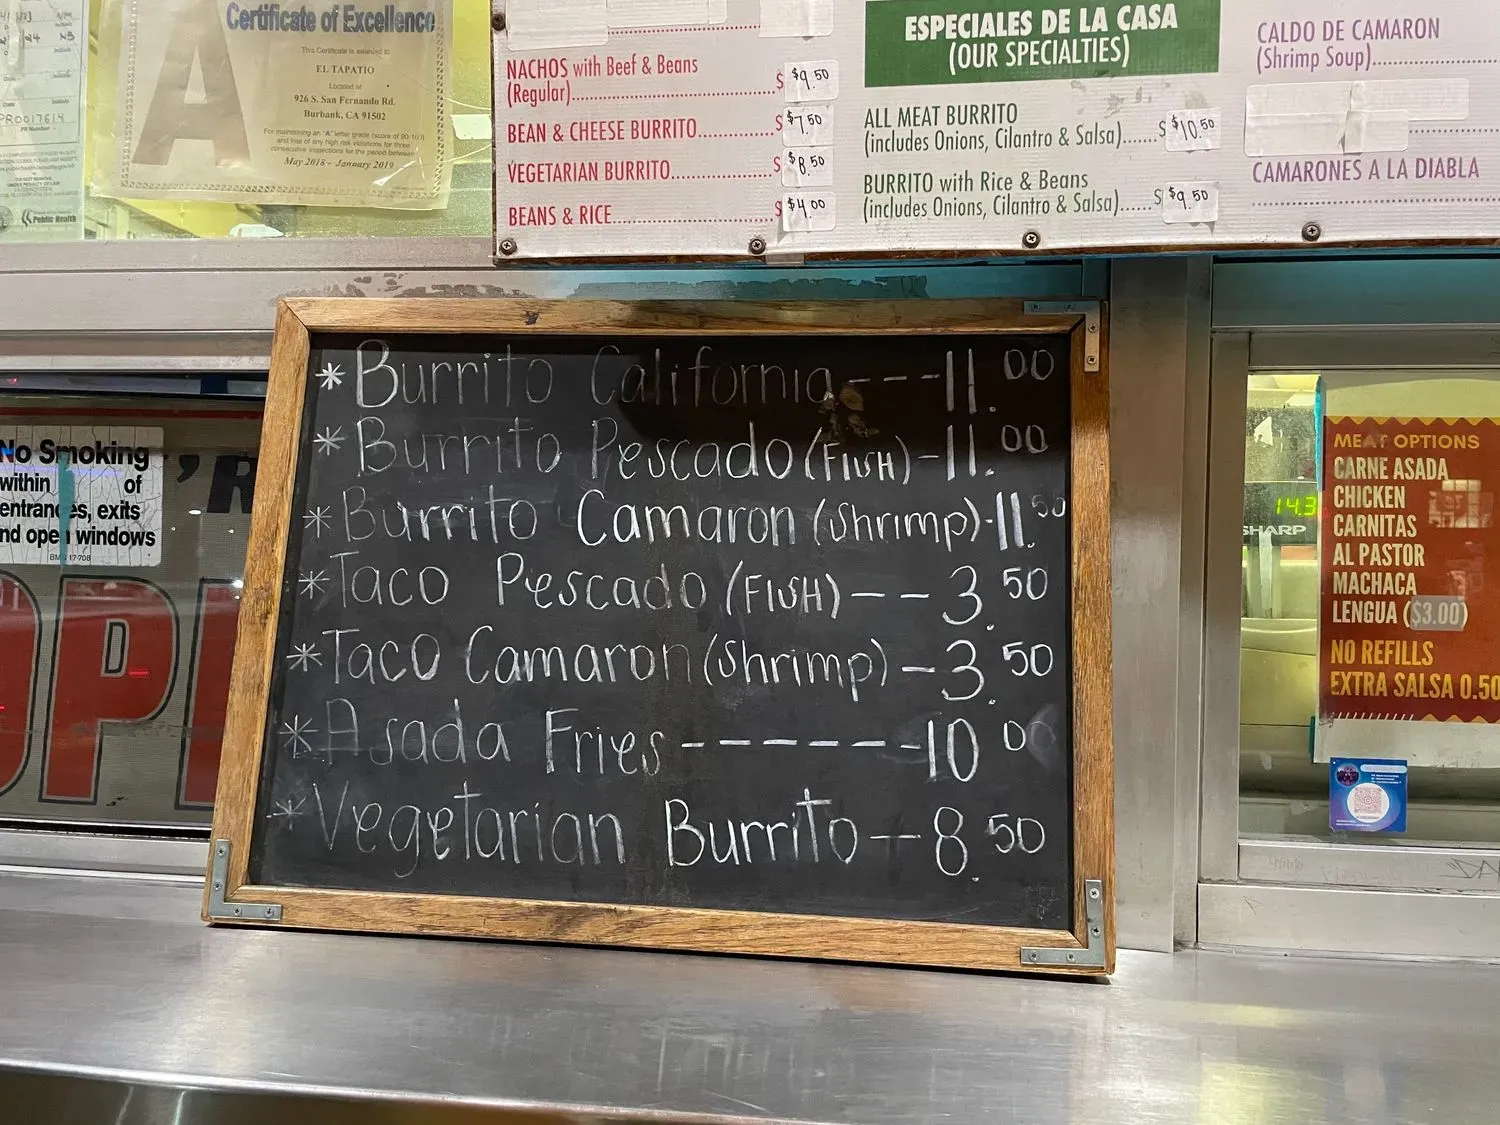 Certificate of Excellence
This Certificate is awarded to
EL TAPATIO
Located at
926 S. San Fernando Rd.
Burbank, CA 91502
For maintaining an "A" letter grade (score of 90-100)
and free of any high risk violations for three
consecutive inspections for the period between
May 2018 - January 2019
A
PR0017614
PR Number
Public Health
NACHOS with Beef & Beans
(Regular)..............................$ $9.50
BEAN & CHEESE BURRITO............$ $7.50
VEGETARIAN BURRITO................$ $8.50
BEANS & RICE..........................$ $4.00
ESPECIALES DE LA CASA
(OUR SPECIALTIES)
ALL MEAT BURRITO
(includes Onions, Cilantro & Salsa).......$ $10.50
BURRITO with Rice & Beans
(includes Onions, Cilantro & Salsa)......$ $9.50
CALDO DE CAMARON
(Shrimp Soup)................
CAMARONES A LA DIABLA
* Burrito California---11.00
* Burrito Pescado (FISH)-11.00
* Burrito Camaron (Shrimp)-11.50
* Taco Pescado (FISH)--3.50
* Taco Camaron (Shrimp)-3.50
* Asada Fries-------10.00
* Vegetarian Burrito-8.50
No Smoking
within of
entrances, exits
and open windows
'R
OP
14.3
SHARP
MEAT OPTIONS
CARNE ASADA
CHICKEN
CARNITAS
AL PASTOR
MACHACA
LENGUA ($3.00)
NO REFILLS
EXTRA SALSA 0.50